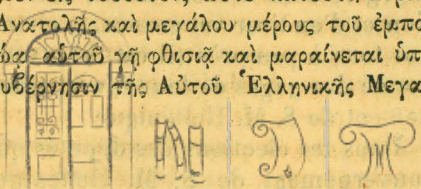 Ἀνατολῆς καὶ μεγάλου μέρους τοῦ ἐμπο
αὑτοῦ γῆ φθισιᾷ καὶ μαραίνεται ὑπ
υβέρνησιν τῆς Αὐτοῦ Ἑλληνικῆς Μεγα